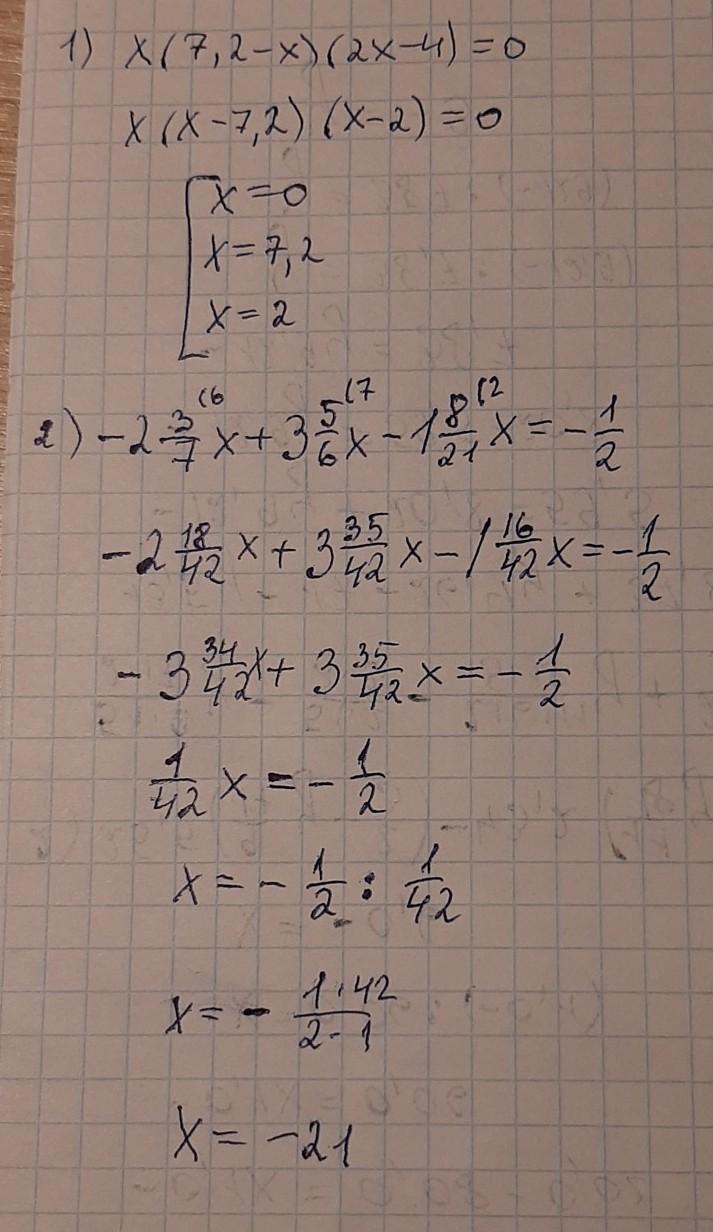 1) x(7,2-x)(2x-4)=0
x(x-7,2)(x-2)=0
[x=0
x=7,2
x=2
2) -2 3/7 (6 x + 3 5/6 (7 x - 1 8/21 (2 x = - 1/2
-2 18/42 x + 3 35/42 x - 1 16/42 x = - 1/2
- 3 34/42 x + 3 35/42 x = - 1/2
1/42 x = - 1/2
x = - 1/2 : 1/42
x = - 1·42/2·1
x = -21